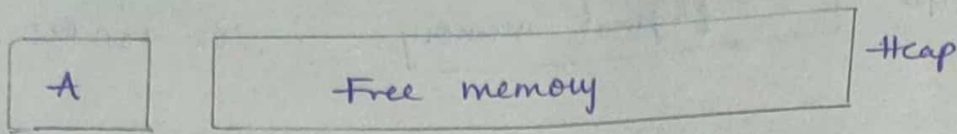 A
Free memory
Heap